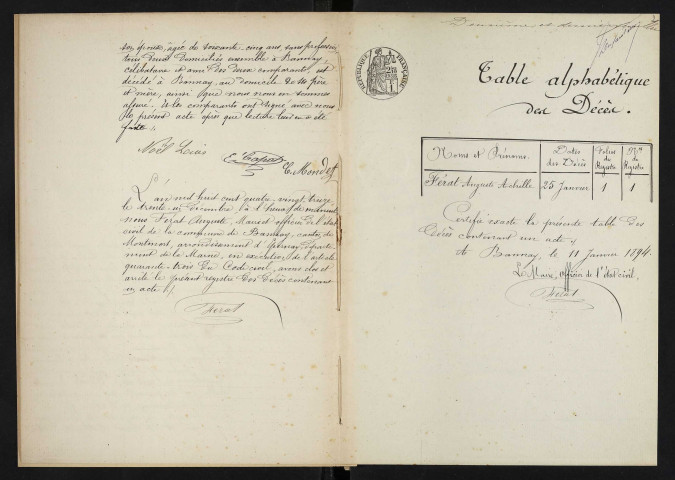 son épouse, âgée de soixante-cinq ans, sans profession
tous deux domiciliés ensemble à Bannay,
célibataire et ami des deux comparants, est
décédé à Bannay, au domicile de ses père
et mère, ainsi que nous nous en sommes
assuré. Et les comparants ont signé avec nous
le présent acte après que lecture leur en a été
faite.
Noël Louis
L'an mil huit cent quatre-vingt-treize
le trente-un Décembre, à heures de
nous Férat Auguste, Maire et officier de l'état
civil de la commune de Bannay, canton de
Montmort, arrondissement d'Epernay, départe-
ment de la Marne, en exécution de l'article
quarante-trois du Code civil, avons clos et
arrêté le présent registre des Décès contenant
un acte
Férat
RÉPUBLIQUE FRANÇAISE
Table alphabétique
des Décès.
Noms et Prénoms. Dates des Décès Folios du Registre Nos du Registre
Férat Auguste Achille 25 Janvier 1 1
Certifié exacte la présente table des
Décès contenant un acte
A Bannay, le 11 Janvier 1894.
Le Maire, officier de l'état civil.
Férat